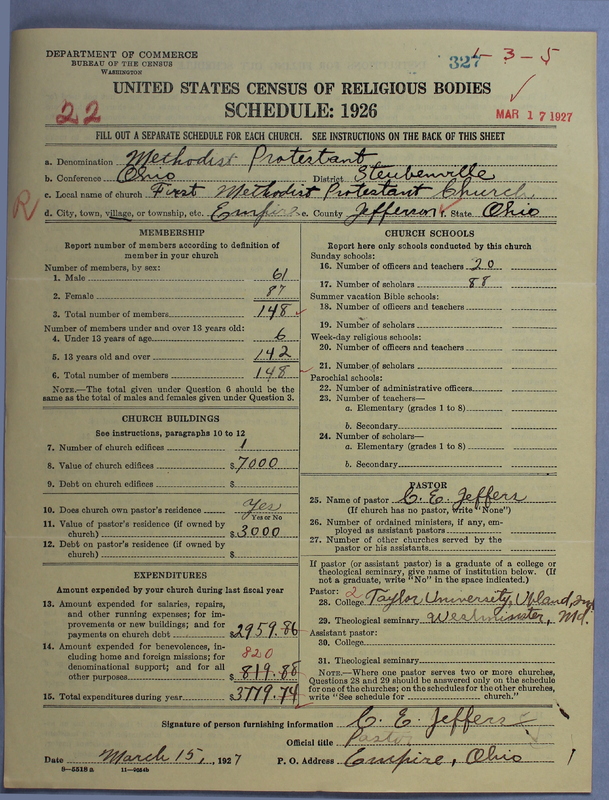 DEPARTMENT OF COMMERCE
BUREAU OF THE CENSUS
WASHINGTON
327
4-3-5
UNITED STATES CENSUS OF RELIGIOUS BODIES
SCHEDULE: 1926
22
MAR 17 1927
FILL OUT A SEPARATE SCHEDULE FOR EACH CHURCH. SEE INSTRUCTIONS ON THE BACK OF THIS SHEET
a. Denomination Methodist Protestant
b. Conference Ohio District Steubenville
c. Local name of church First Methodist Protestant Church
R
d. City, town, village, or township, etc. Empire e. County Jefferson f. State Ohio
MEMBERSHIP
Report number of members according to definition of
member in your church
Number of members, by sex:
1. Male 61
2. Female 87
3. Total number of members 148
Number of members under and over 13 years old:
4. Under 13 years of age 6
5. 13 years old and over 142
6. Total number of members 148
NOTE.—The total given under Question 6 should be
same as the total of males and females given under Question 3.
CHURCH BUILDINGS
See instructions, paragraphs 10 to 12
7. Number of church edifices 1
8. Value of church edifices $7000
9. Debt on church edifices $
10. Does church own pastor's residence Yes
Yes or No
11. Value of pastor's residence (if owned by
church) $3000
12. Debt on pastor's residence (if owned by
church) $
EXPENDITURES
Amount expended by your church during last fiscal year
13. Amount expended for salaries, repairs,
and other running expenses; for im-
provements or new buildings; and for
payments on church debt $2959.86
14. Amount expended for benevolences, in-
cluding home and foreign missions; for
denominational support; and for all
other purposes $819.88
820
15. Total expenditures during year $3779.74
CHURCH SCHOOLS
Report here only schools conducted by this church
Sunday schools:
16. Number of officers and teachers 20
17. Number of scholars 88
Summer vacation Bible schools:
18. Number of officers and teachers
19. Number of scholars
Week-day religious schools:
20. Number of officers and teachers
21. Number of scholars
Parochial schools:
22. Number of administrative officers
23. Number of teachers—
a. Elementary (grades 1 to 8)
b. Secondary
24. Number of scholars—
a. Elementary (grades 1 to 8)
b. Secondary
PASTOR
25. Name of pastor C. E. Jeffers
(If church has no pastor, write "None")
26. Number of ordained ministers, if any, em-
ployed as assistant pastors
27. Number of other churches served by the
pastor or his assistants
If pastor (or assistant pastor) is a graduate of a college or
theological seminary, give name of institution below. (If
not a graduate, write "No" in the space indicated.)
Pastor: 2
28. College Taylor University, Upland, Ind
29. Theological seminary Westminster, Md.
Assistant pastor:
30. College
31. Theological seminary
NOTE.—Where one pastor serves two or more churches,
Questions 28 and 29 should be answered only on the schedule
for one of the churches; on the schedules for the other churches,
write "See schedule for church."
Signature of person furnishing information C. E. Jeffers
Official title Pastor
Date March 15, , 1927 P. O. Address Empire, Ohio
8—5518 a 11—9054b